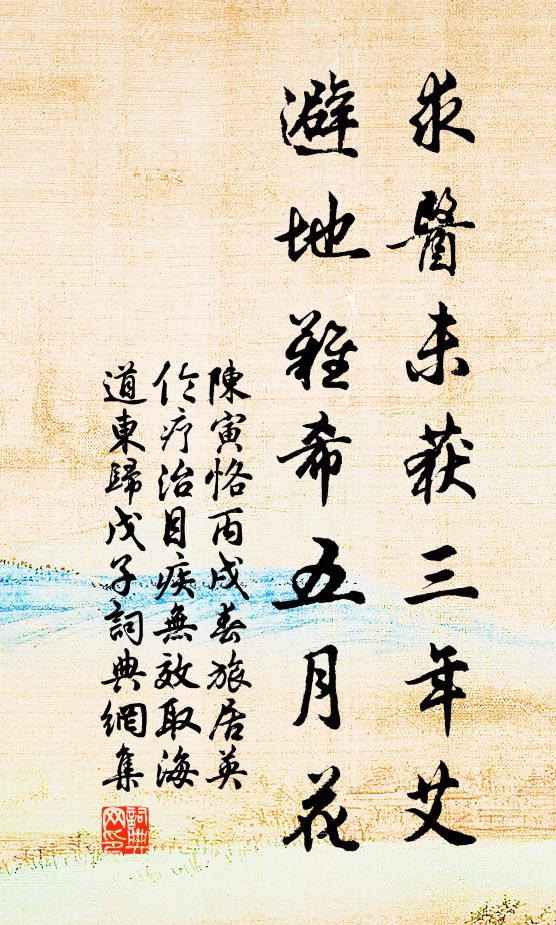 求醫未获三年艾
避地難希五月花
陳寅恪丙戌春旅居英
伦疗治目疾無效取海
道東歸戊子詞典網集
詞典网印